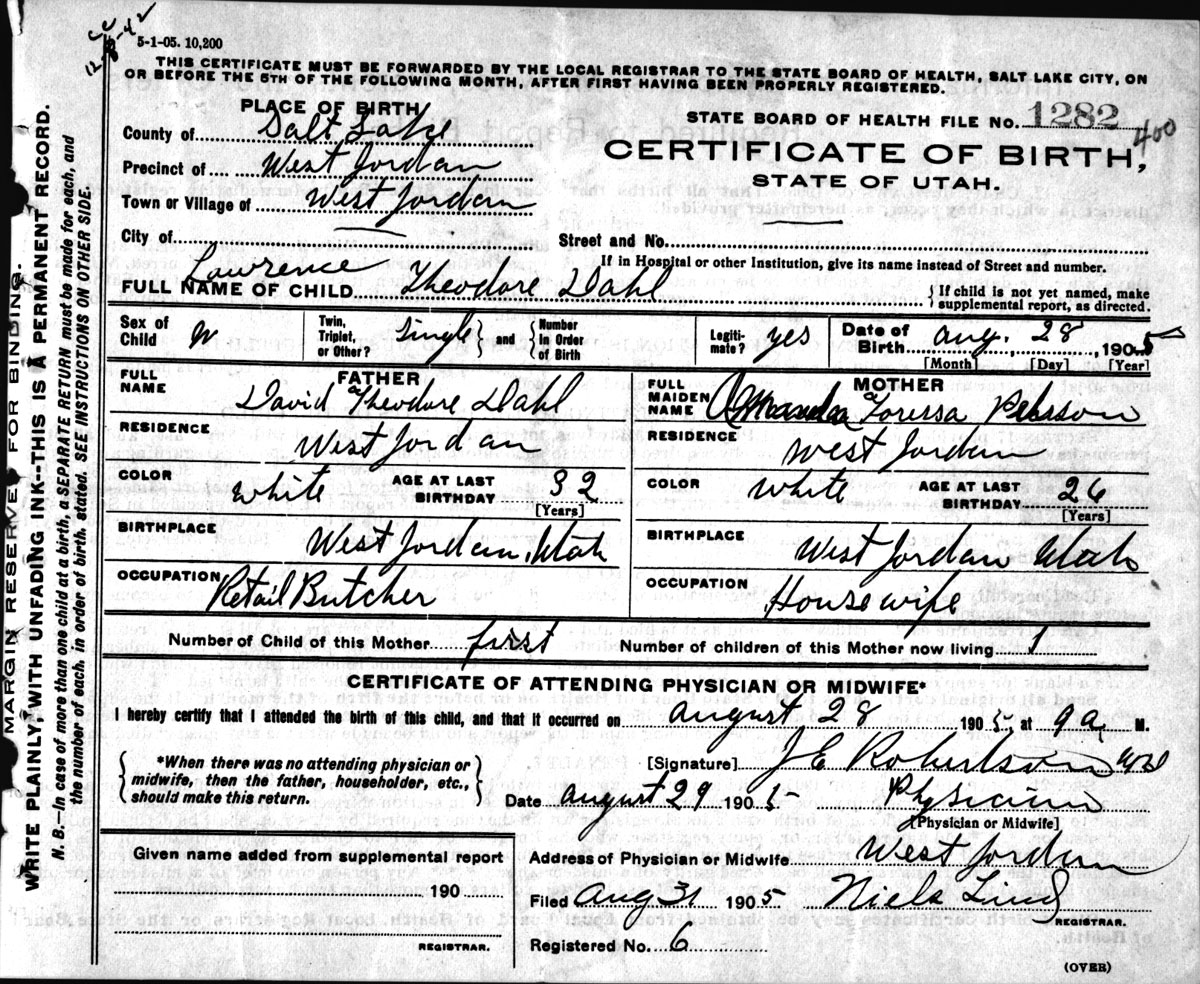 5-1-05. 10,200
THIS CERTIFICATE MUST BE FORWARDED BY THE LOCAL REGISTRAR TO THE STATE BOARD OF HEALTH, SALT LAKE CITY, ON
OR BEFORE THE 5TH OF THE FOLLOWING MONTH, AFTER FIRST HAVING BEEN PROPERLY REGISTERED.
PLACE OF BIRTH
County of Salt Lake
Precinct of West Jordan
Town or Village of West Jordan
City of
STATE BOARD OF HEALTH FILE NO. 1282
400
CERTIFICATE OF BIRTH,
STATE OF UTAH.
Street and No.
If in Hospital or other Institution, give its name instead of Street and number.
FULL NAME OF CHILD Lawrence Theodore Dahl
{If child is not yet named, make
supplemental report, as directed.
Sex of Child M
Twin, Triplet, or Other? Single } and { Number In Order of Birth
Legiti-mate? yes
Date of Birth Aug. 28, 1905
[Month] [Day] [Year]
FATHER
FULL NAME David Theodore Dahl
RESIDENCE West Jordan
COLOR white AGE AT LAST BIRTHDAY 32
[Years]
BIRTHPLACE West Jordan, Utah
OCCUPATION Retail Butcher
MOTHER
FULL MAIDEN NAME Amanda Toressa
RESIDENCE West Jordan
COLOR White AGE AT LAST BIRTHDAY 26
[Years]
BIRTHPLACE West Jordan Utah
OCCUPATION Housewife
Number of Child of this Mother first Number of children of this Mother now living 1
CERTIFICATE OF ATTENDING PHYSICIAN OR MIDWIFE*
I hereby certify that I attended the birth of this child, and that it occurred on August 28 1905, at 9 a. M.
{ *When there was no attending physician or
midwife, then the father, householder, etc.,
should make this return. }
[Signature] J E Robertson
Date August 29 1905 Physician
[Physician or Midwife]
Address of Physician or Midwife West Jordan
Filed Aug 31 1905 Niels Lind
REGISTRAR.
Registered No. 6
Given name added from supplemental report
190
REGISTRAR.
(OVER)
MARGIN RESERVE FOR BINDING.
WRITE PLAINLY, WITH UNFADING INK--THIS IS A PERMANENT RECORD.
N. B.—In case of more than one child at a birth, a SEPARATE RETURN must be made for each, and
the number of each, in order of birth, stated. SEE INSTRUCTIONS ON OTHER SIDE.